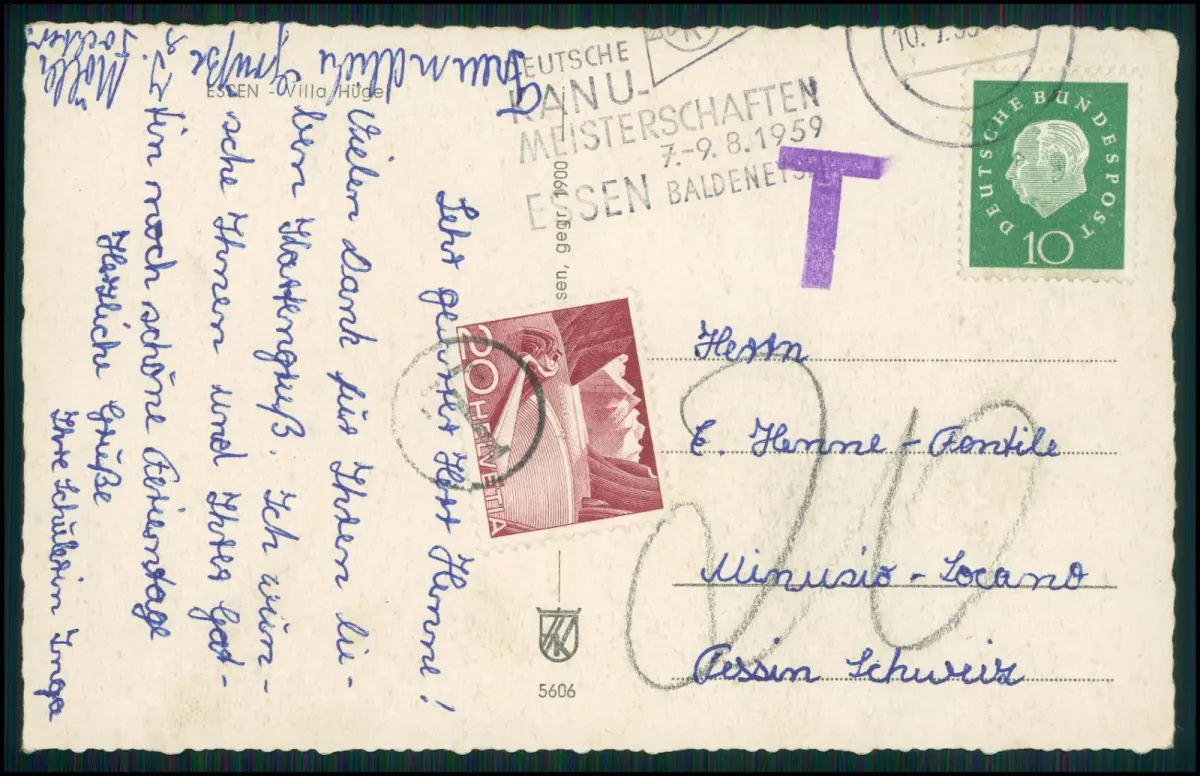 ESSEN - Villa Hügel
Sehr geehrter Herr Henne!
Vielen Dank für Ihren lie-
ben Kartengruß. Ich wün-
sche Ihnen und Ihrer Gat-
tin noch schöne Ferientage
Herzliche Grüße
Ihre Schülerin Inga
Freundliche Grüße
Tochter
DEUTSCHE
KANU-
MEISTERSCHAFTEN
7.-9.8.1959
ESSEN BALDENEYSEE
T
DEUTSCHE BUNDESPOST
10
sen, gegr. 1900
20 HELVETIA
Herrn
E. Henne - Fentile
Minusio - Locano
Tessin Schweiz
20
5606